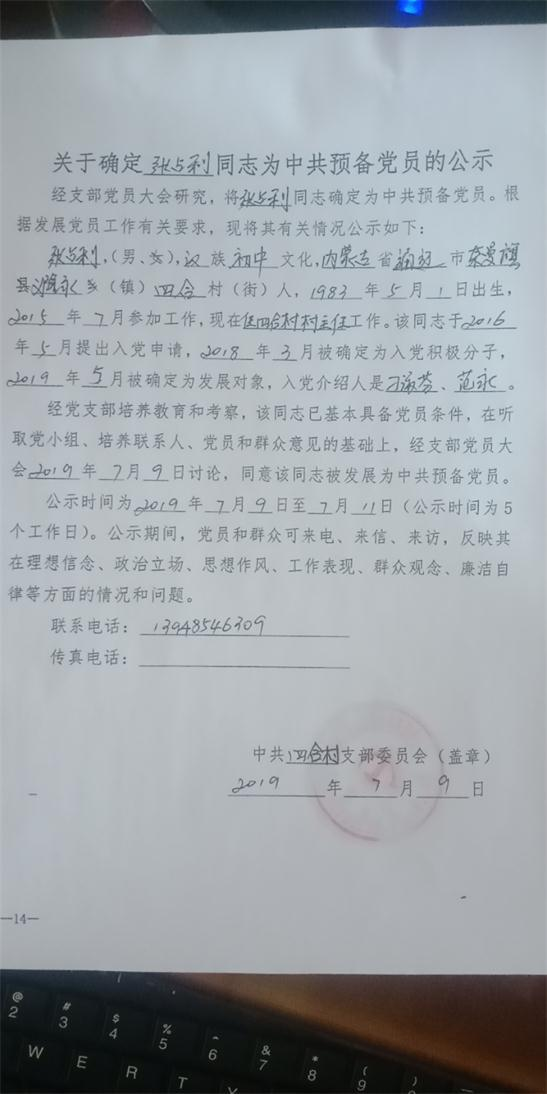 关于确定张占利同志为中共预备党员的公示
经支部党员大会研究，将张占利同志确定为中共预备党员。根
据发展党员工作有关要求，现将其有关情况公示如下：
张占利，（男、女），汉族 初中 文化，内蒙古省通辽市奈曼旗
县 乡（镇）四合村（街）人，1983年5月1日出生，
2015年7月参加工作，现在任四合村村主任工作。该同志于2016
年5月提出入党申请，2018年3月被确定为入党积极分子，
2019年5月被确定为发展对象，入党介绍人是 、范永。
经党支部培养教育和考察，该同志已基本具备党员条件，在听
取党小组、培养联系人、党员和群众意见的基础上，经支部党员大
会2019年7月9日讨论，同意该同志被发展为中共预备党员。
公示时间为2019年7月9日至7月11日（公示时间为5
个工作日）。公示期间，党员和群众可来电、来信、来访，反映其
在理想信念、政治立场、思想作风、工作表现、群众观念、廉洁自
律等方面的情况和问题。
联系电话：13948546309
传真电话：
中共四合村支部委员会（盖章）
2019年7月9日
—14—
@ # $ % ^ & * ( )
2 3 4 5 6 7 8 9
W E R T Y